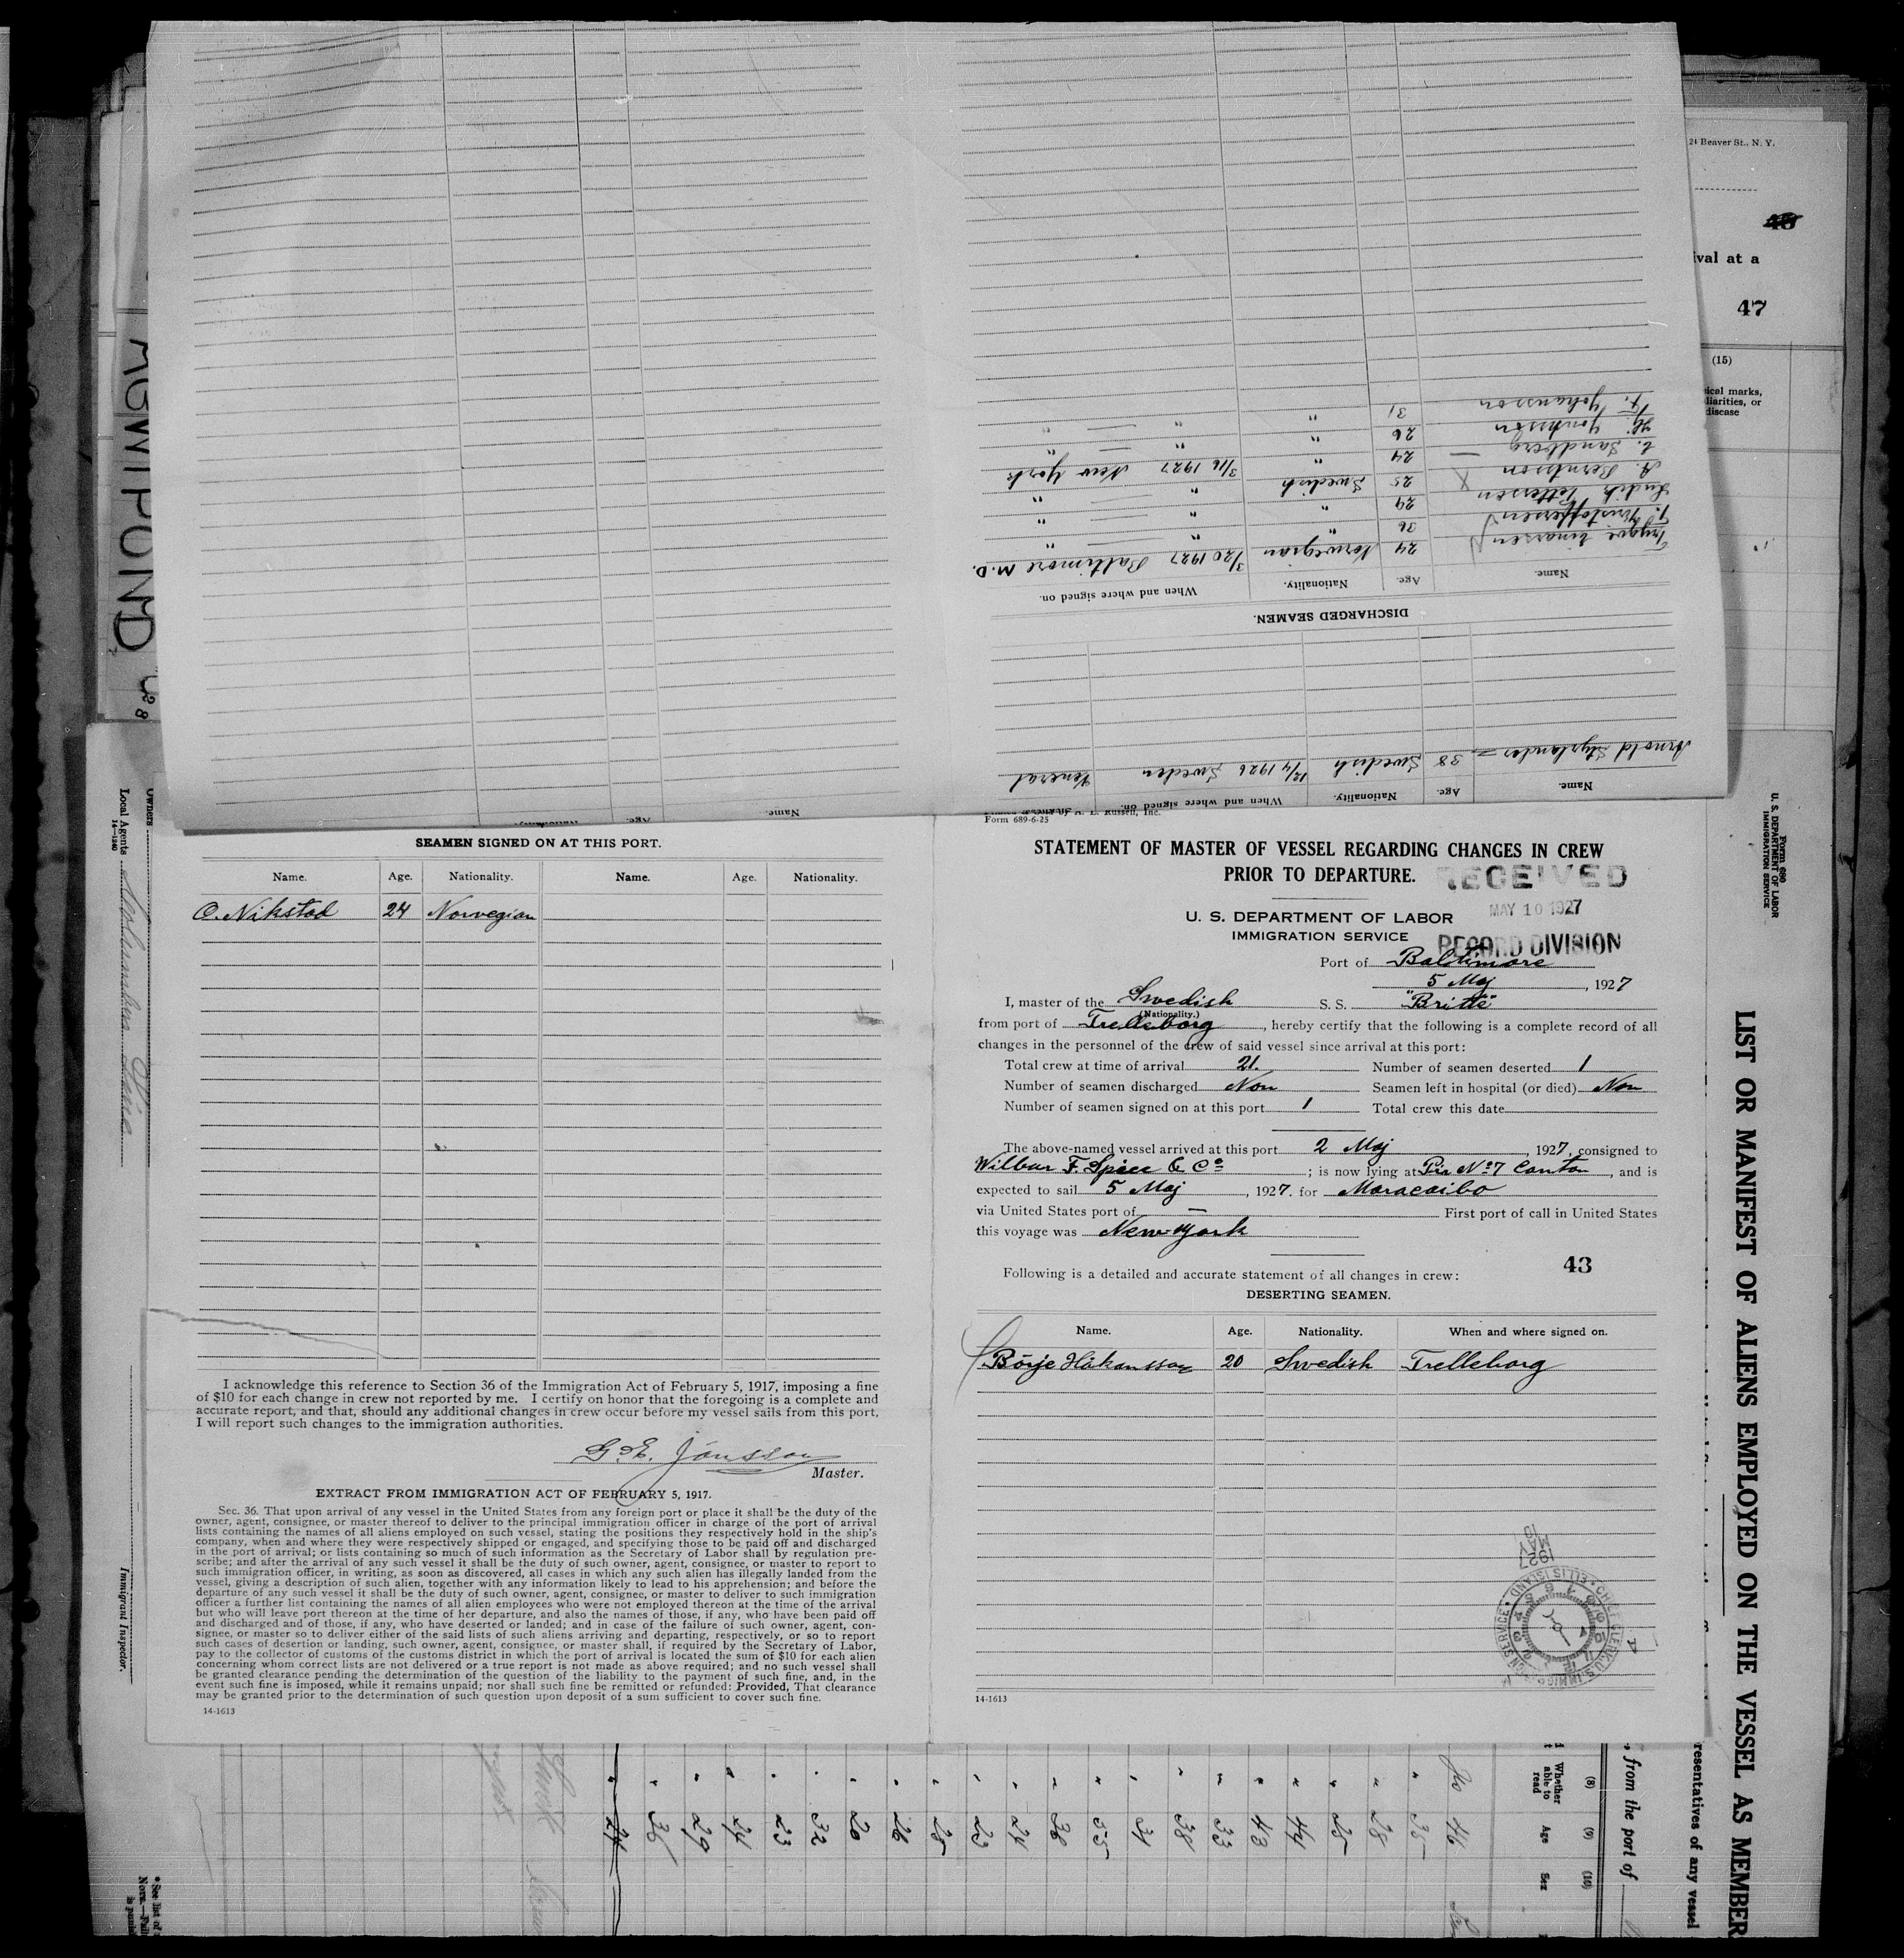 24 Beaver St., N. Y.
45
ival at a
47
(15)
ical marks,
liarities, or
disease
F. Johansson 31 " " — "
Hj. Jonasson 26 " " — "
E. Sandberg 24 " " — "
A. Berntsson 25 Swedish 3/16 1927 New York
24 " " — "
36 " " — "
Trygve Einarsen 24 Norwegian 3/20 1927 Baltimore M.D.
Name. Age. Nationality. When and where signed on.
DISCHARGED SEAMEN.
Arnold 38 Swedish 12/4 1926 Sweden Veneral
Name. Age. Nationality. When and where signed on.
Name.
AGWIPOND
Owners
Local Agents
14—1240
Immigrant Inspector.
SEAMEN SIGNED ON AT THIS PORT.
Name. Age. Nationality. Name. Age. Nationality.
O. Nikstad 24 Norwegian
I acknowledge this reference to Section 36 of the Immigration Act of February 5, 1917, imposing a fine
of $10 for each change in crew not reported by me. I certify on honor that the foregoing is a complete and
accurate report, and that, should any additional changes in crew occur before my vessel sails from this port,
I will report such changes to the immigration authorities.
G. E. Jönsson
Master.
EXTRACT FROM IMMIGRATION ACT OF FEBRUARY 5, 1917.
Sec. 36. That upon arrival of any vessel in the United States from any foreign port or place it shall be the duty of the
owner, agent, consignee, or master thereof to deliver to the principal immigration officer in charge of the port of arrival
lists containing the names of all aliens employed on such vessel, stating the positions they respectively hold in the ship's
company, when and where they were respectively shipped or engaged, and specifying those to be paid off and discharged
in the port of arrival; or lists containing so much of such information as the Secretary of Labor shall by regulation pre-
scribe; and after the arrival of any such vessel it shall be the duty of such owner, agent, consignee, or master to report to
such immigration officer, in writing, as soon as discovered, all cases in which any such alien has illegally landed from the
vessel, giving a description of such alien, together with any information likely to lead to his apprehension; and before the
departure of any such vessel it shall be the duty of such owner, agent, consignee, or master to deliver to such immigration
officer a further list containing the names of all alien employees who were not employed thereon at the time of the arrival
but who will leave port thereon at the time of her departure, and also the names of those, if any, who have been paid off
and discharged and of those, if any, who have deserted or landed; and in case of the failure of such owner, agent, con-
signee, or master so to deliver either of the said lists of such aliens arriving and departing, respectively, or so to report
such cases of desertion or landing, such owner, agent, consignee, or master shall, if required by the Secretary of Labor,
pay to the collector of customs of the customs district in which the port of arrival is located the sum of $10 for each alien
concerning whom correct lists are not delivered or a true report is not made as above required; and no such vessel shall
be granted clearance pending the determination of the question of the liability to the payment of such fine, and, in the
event such fine is imposed, while it remains unpaid; nor shall such fine be remitted or refunded: Provided, That clearance
may be granted prior to the determination of such question upon deposit of a sum sufficient to cover such fine.
14-1613
Form 689-6-25
STATEMENT OF MASTER OF VESSEL REGARDING CHANGES IN CREW
PRIOR TO DEPARTURE.
RECEIVED
MAY 10 1927
RECORD DIVISION
U. S. DEPARTMENT OF LABOR
IMMIGRATION SERVICE
Port of Baltimore
5 Maj, 1927
I, master of the Swedish S. S. "Britte"
(Nationality.)
from port of Trelleborg, hereby certify that the following is a complete record of all
changes in the personnel of the crew of said vessel since arrival at this port:
Total crew at time of arrival 21. Number of seamen deserted 1
Number of seamen discharged Non Seamen left in hospital (or died) Non
Number of seamen signed on at this port 1 Total crew this date
The above-named vessel arrived at this port 2 Maj, 1927, consigned to
Wilbur F. Spice & Co; is now lying at Pir No 7 Canton, and is
expected to sail 5 Maj, 1927. for Maracaibo
via United States port of — First port of call in United States
this voyage was New York
43
Following is a detailed and accurate statement of all changes in crew:
DESERTING SEAMEN.
Name. Age. Nationality. When and where signed on.
Börje Håkansson 20 Swedish Trelleborg
1927
MAY
14-1613
Form 680
U. S. DEPARTMENT OF LABOR
IMMIGRATION SERVICE
LIST OR MANIFEST OF ALIENS EMPLOYED ON THE VESSEL AS MEMBER
resentatives of any vessel
, from the port of
(8) (9) (10)
Whether able to read Age Sex
46
35
28
25
44
43
33
38
31
55
36
24
23
25
26
20
32
23
24
29
36
24